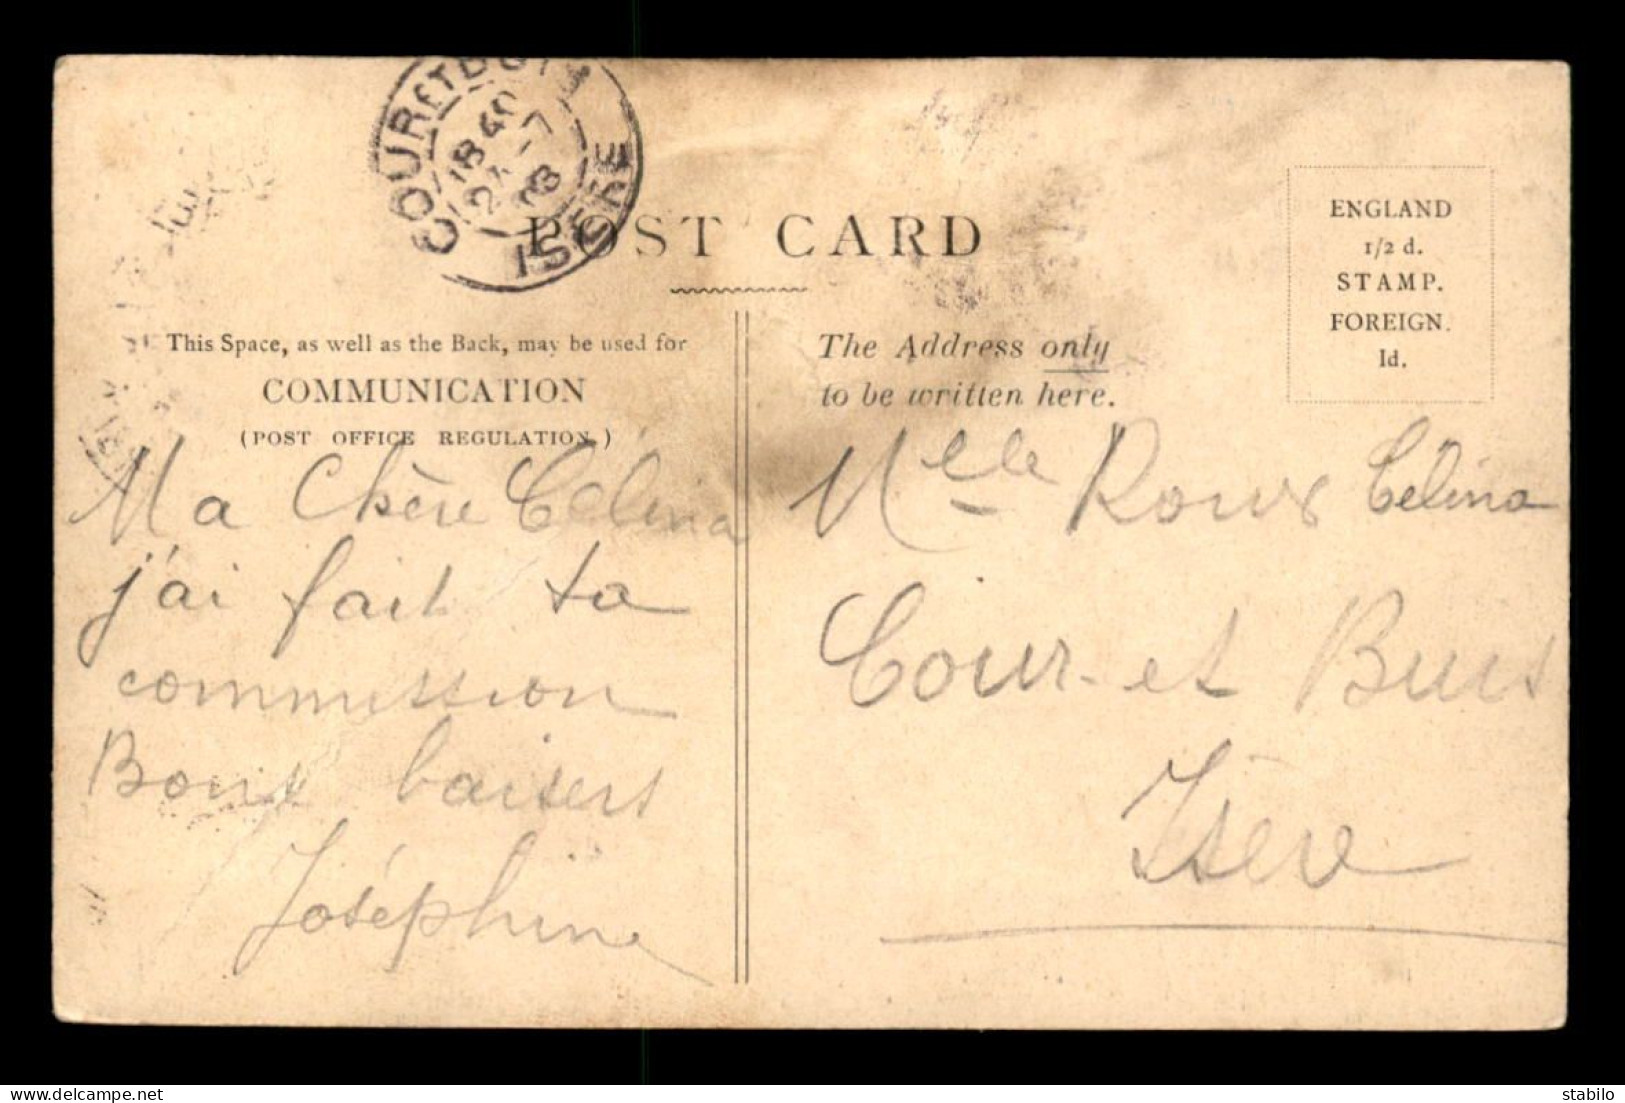 COUR ET BUIS
18 40
7
08
ISÈRE
POST CARD
ENGLAND
1/2 d.
STAMP.
FOREIGN.
1d.
This Space, as well as the Back, may be used for
COMMUNICATION
(POST OFFICE REGULATION.)
The Address only
to be written here.
Ma Chère Célina
j'ai fait ta
commission
Bons baisers
Joséphine
Melle Roux Célina
Cour-et Buis
Isère
stabilo